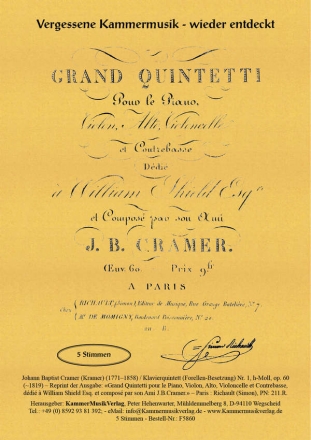 Vergessene Kammermusik - wieder entdeckt
GRAND QUINTETTI
Pour le Piano,
Violon, Alto, Violoncelle
et Contrebasse
Dédié
à William Shield Esq.
et Composé par son Ami
J. B. CRAMER.
Œuv. 60 Prix 9
A PARIS
chez
RICHAULT, Editeur de Musique, Rue Grange Batelière, Nº 7.
Mr. DE MOMIGNY, Boulevart Poissonnière, Nº 20.
5 Stimmen
Johann Baptist Cramer (Kramer) (1771–1858) / Klavierquintett (Forellen-Besetzung) Nr. 1, h-Moll, op. 60
(~1819) – Reprint der Ausgabe: »Grand Quintetti pour le Piano, Violon, Alto, Violoncelle et Contrebasse,
dédié à William Shield Esq. et composé par son Ami J.B.Cramer.« – Paris : Richault (Simon), PN: 211.R.
Herausgeber: KammerMusikVerlag, Peter Hehenwarter, Mühldemmelberg 8, D-94110 Wegscheid
Tel.: +49 (0) 8592 93 81 392; - eMail: info@Kammermusikverlag.de - www.Kammermusikverlag.de
5 Stimmen - Bestell-Nr : F5860